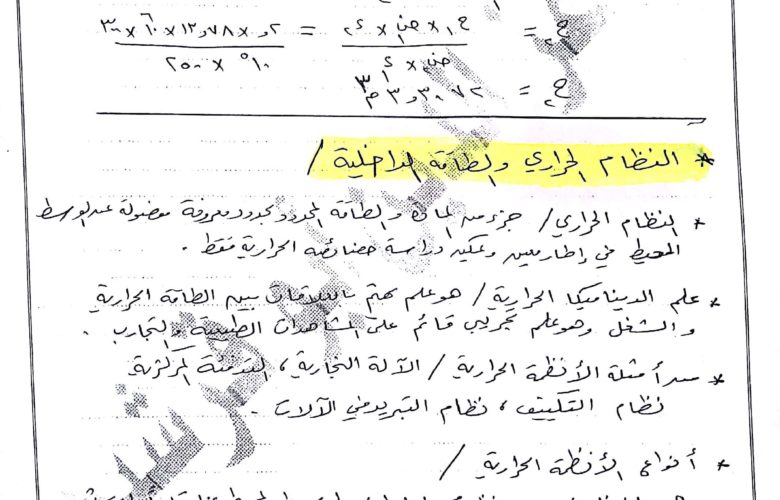 ح٢ = ح١ × ض١ × ك٢ / ض٢ × ك١ = ٢و × ٧٨و١٣ × ١٠^٦ × ٣٠٠ / ١٠^٥ × ٢٥٠
ح٢ = ٣٠٧٢و٣ م٣
* النظام الحراري والطاقة الداخلية /
* النظام الحراري / جزء من المادة والطاقة المحدود بحدود معروفة مفصولة عن الوسط
المحيط في إطار معين ويمكن دراسة خصائصه الحرارية فقط .
* علم الديناميكا الحرارية / هو علم يهتم بالعلاقات بين الطاقة الحرارية
والشغل وهو علم تجريبي قائم على المشاهدات الطبيعية والتجارب .
* من أمثلة الأنظمة الحرارية / الآلة البخارية ، التدفئة المركزية
نظام التكييف ، نظام التبريد في الآلات .
* أنواع الأنظمة الحرارية /